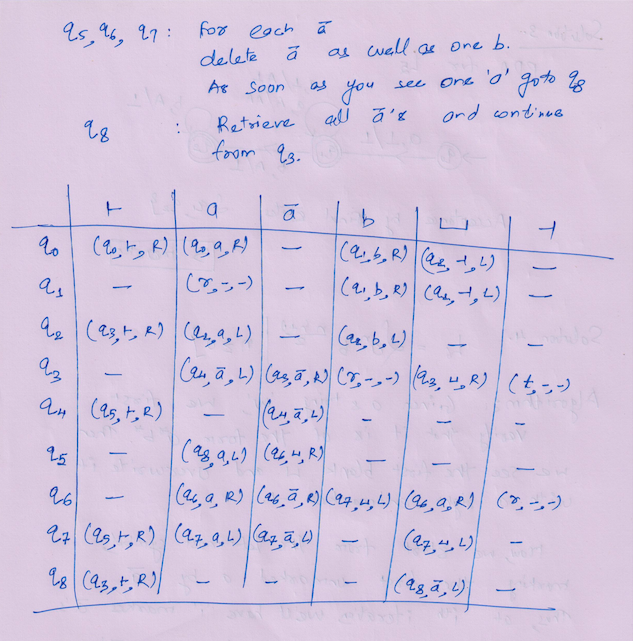 q5, q6, q7 : For each ā
delete ā as well as one b.
As soon as you see one 'a' goto q8
q8 : Retrieve all ā's and continue
from q3.
⊢ a ā b ⊔ ⊣
q0 (q0,⊢,R) (q0,a,R) – (q1,b,R) (q2,⊣,L) –
q1 – (r,-,-) – (q1,b,R) (q2,⊣,L) –
q2 (q3,⊢,R) (q2,a,L) – (q2,b,L) – –
q3 – (q4,ā,L) (q3,ā,R) (r,-,-) (q3,⊔,R) (t,-,-)
q4 (q5,⊢,R) – (q4,ā,L) – – –
q5 – (q8,a,L) (q6,⊔,R) – – –
q6 – (q6,a,R) (q6,ā,R) (q7,⊔,L) (q6,a,R) (r,-,-)
q7 (q5,⊢,R) (q7,a,L) (q7,ā,L) – (q7,⊔,L) –
q8 (q3,⊢,R) – – – (q8,ā,L) –